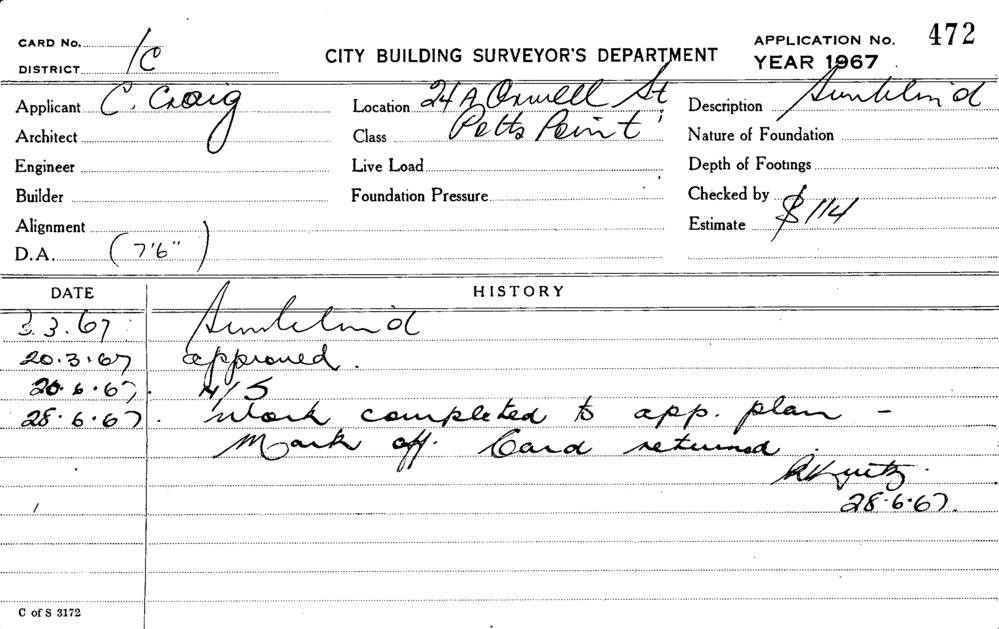 CARD No.
472
DISTRICT 1C
CITY BUILDING SURVEYOR'S DEPARTMENT
APPLICATION No.
YEAR 1967
Applicant C. Craig
Location 24A Orwell St
Description Sunblind
Architect
Class Potts Point
Nature of Foundation
Engineer
Live Load
Depth of Footings
Builder
Foundation Pressure
Checked by
Alignment
Estimate $114
D.A. (7'6")
DATE HISTORY
3.67 Sunblind
20.3.67 approved.
26.6.67. N/S
28.6.67. Work completed to app. plan -
Mark off. Card returned.
28.6.67.
C of S 3172